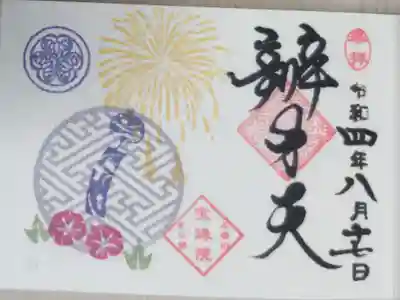 奉拝
令和四年八月十七日
辨才天
宝珠院